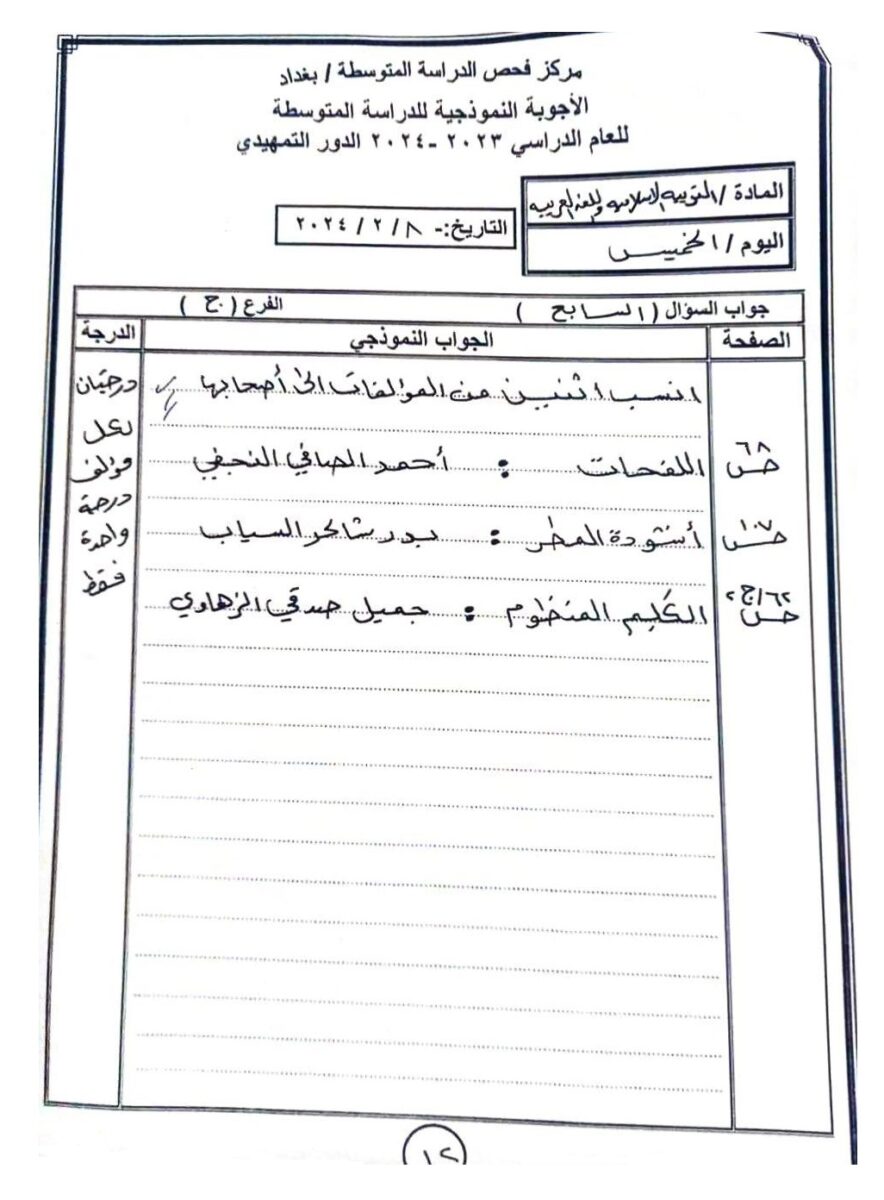 مركز فحص الدراسة المتوسطة / بغداد
الأجوبة النموذجية للدراسة المتوسطة
للعام الدراسي ٢٠٢٣ -٢٠٢٤ الدور التمهيدي
المادة / التربية الاسلامية واللغة العربية
اليوم / الخميس
التاريخ:- ٨ / ٢ / ٢٠٢٤
جواب السؤال ( السابع ) الفرع ( ج )
الصفحة الجواب النموذجي الدرجة
انسب اثنين من المؤلفات الى أصحابها
ص ٦٨ اللفحات : أحمد الصافي النجفي
ص ١٠٧ أنشودة المطر : بدر شاكر السياب
ص ٦٢/ج٢ الكَلِم المنظوم : جميل صدقي الزهاوي
درجتان
لكل
مؤلف
درجة
واحدة
فقط
١٢